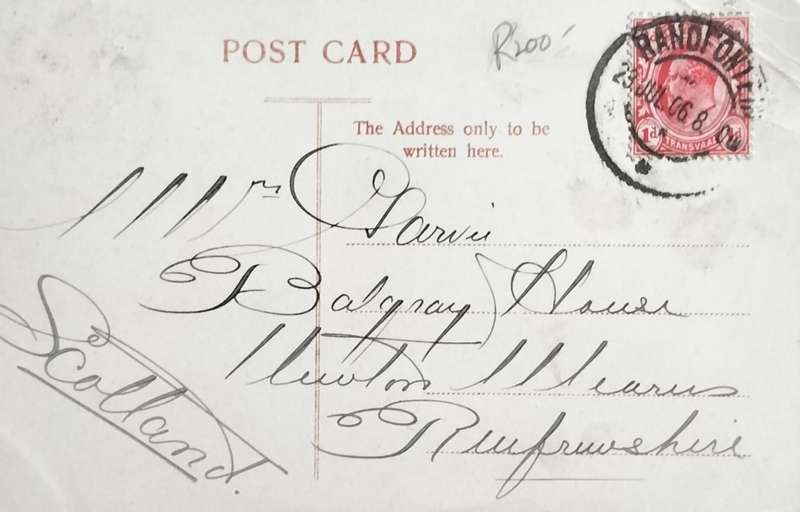 POST CARD
R200
RANDFONTEIN
29 JUL 06 8.
1d
TRANSVAAL
The Address only to be
written here.
Mrs Garvie
Balgray House
Newton Mearns
Renfrewshire
Scotland.